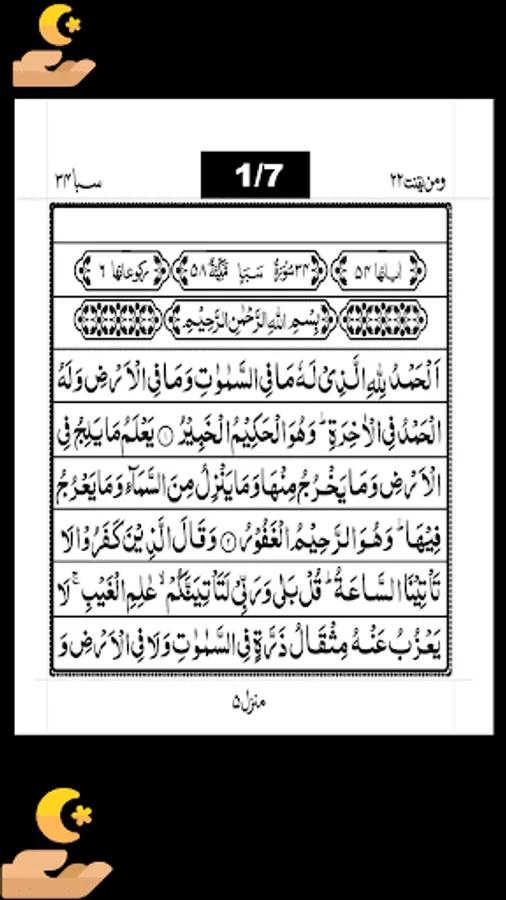 ومن یقنت ۲۲
1/7
سبا ۳۴
اٰیاتها ۵۴
۳۴ سُوْرَةُ سَبَاٍ مَكِّيَّةٌ ۵۸
رکوعاتها ۶
بِسْمِ اللّٰهِ الرَّحْمٰنِ الرَّحِيْمِ
اَلْحَمْدُ لِلّٰهِ الَّذِیْ لَهٗ مَا فِی السَّمٰوٰتِ وَمَا فِی الْاَرْضِ وَلَهُ
الْحَمْدُ فِی الْاٰخِرَةِ ؕ وَهُوَ الْحَكِیْمُ الْخَبِیْرُ ۝۱ یَعْلَمُ مَا یَلِجُ فِی
الْاَرْضِ وَمَا یَخْرُجُ مِنْهَا وَمَا یَنْزِلُ مِنَ السَّمَآءِ وَمَا یَعْرُجُ
فِیْهَا ؕ وَهُوَ الرَّحِیْمُ الْغَفُوْرُ ۝۲ وَقَالَ الَّذِیْنَ كَفَرُوْا لَا
تَاْتِیْنَا السَّاعَةُ ؕ قُلْ بَلٰی وَرَبِّیْ لَتَاْتِیَنَّكُمْ ۙ عٰلِمِ الْغَیْبِ ۚ لَا
یَعْزُبُ عَنْهُ مِثْقَالُ ذَرَّةٍ فِی السَّمٰوٰتِ وَلَا فِی الْاَرْضِ وَ
منزل ۵